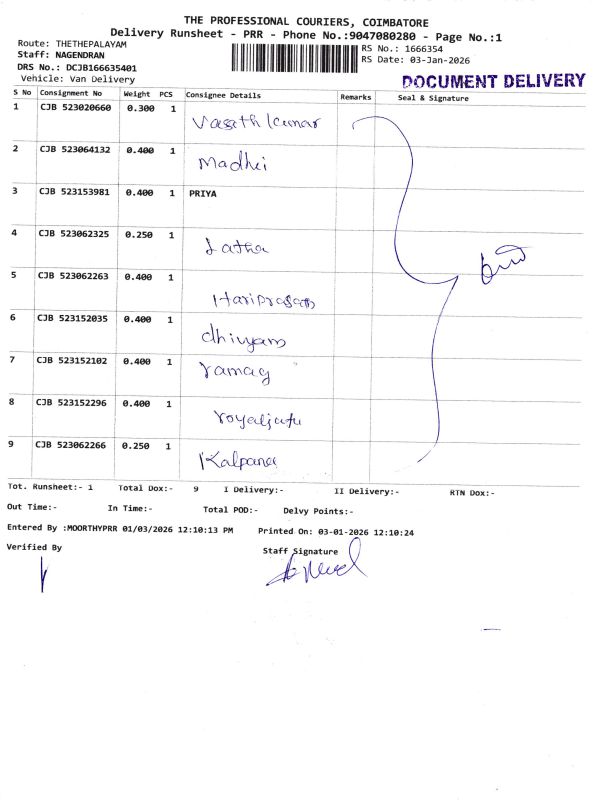 THE PROFESSIONAL COURIERS, COIMBATORE
Delivery Runsheet - PRR - Phone No.:9047080280 - Page No.:1
Route: THETHEPALAYAM
Staff: NAGENDRAN
DRS No.: DCJB166635401
Vehicle: Van Delivery
RS No.: 1666354
RS Date: 03-Jan-2026
DOCUMENT DELIVERY
S No Consignment No Weight PCS Consignee Details Remarks Seal & Signature
1 CJB 523020660 0.300 1 Vasath Kumar
2 CJB 523064132 0.400 1 Madhei
3 CJB 523153981 0.400 1 PRIYA
4 CJB 523062325 0.250 1 Latha
5 CJB 523062263 0.400 1 Hariprasath
6 CJB 523152035 0.400 1 dhivyam
7 CJB 523152102 0.400 1
8 CJB 523152296 0.400 1
9 CJB 523062266 0.250 1 Kalpana
Tot. Runsheet:- 1 Total Dox:- 9 I Delivery:- II Delivery:- RTN Dox:-
Out Time:- In Time:- Total POD:- Delvy Points:-
Entered By :MOORTHYPRR 01/03/2026 12:10:13 PM Printed On: 03-01-2026 12:10:24
Verified By Staff Signature